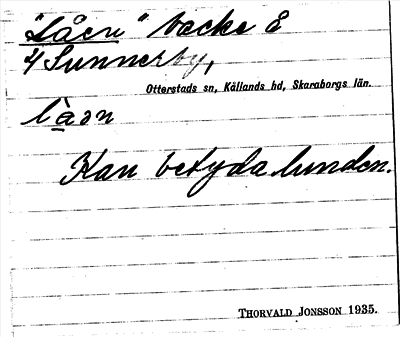 "Låen" backe å
4 Sunnerby,
Otterstads sn, Kållands hd, Skaraborgs län.
làn
Kan betyda lunden.
THORVALD JONSSON 1935.